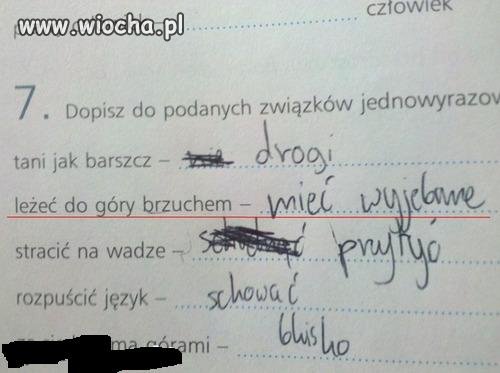 człowiek
www.wiocha.pl
7. Dopisz do podanych związków jednowyrazow
tani jak barszcz – drogi
leżeć do góry brzuchem – mieć wyjebane
stracić na wadze – przytyć
rozpuścić język – schować
górami – blisko